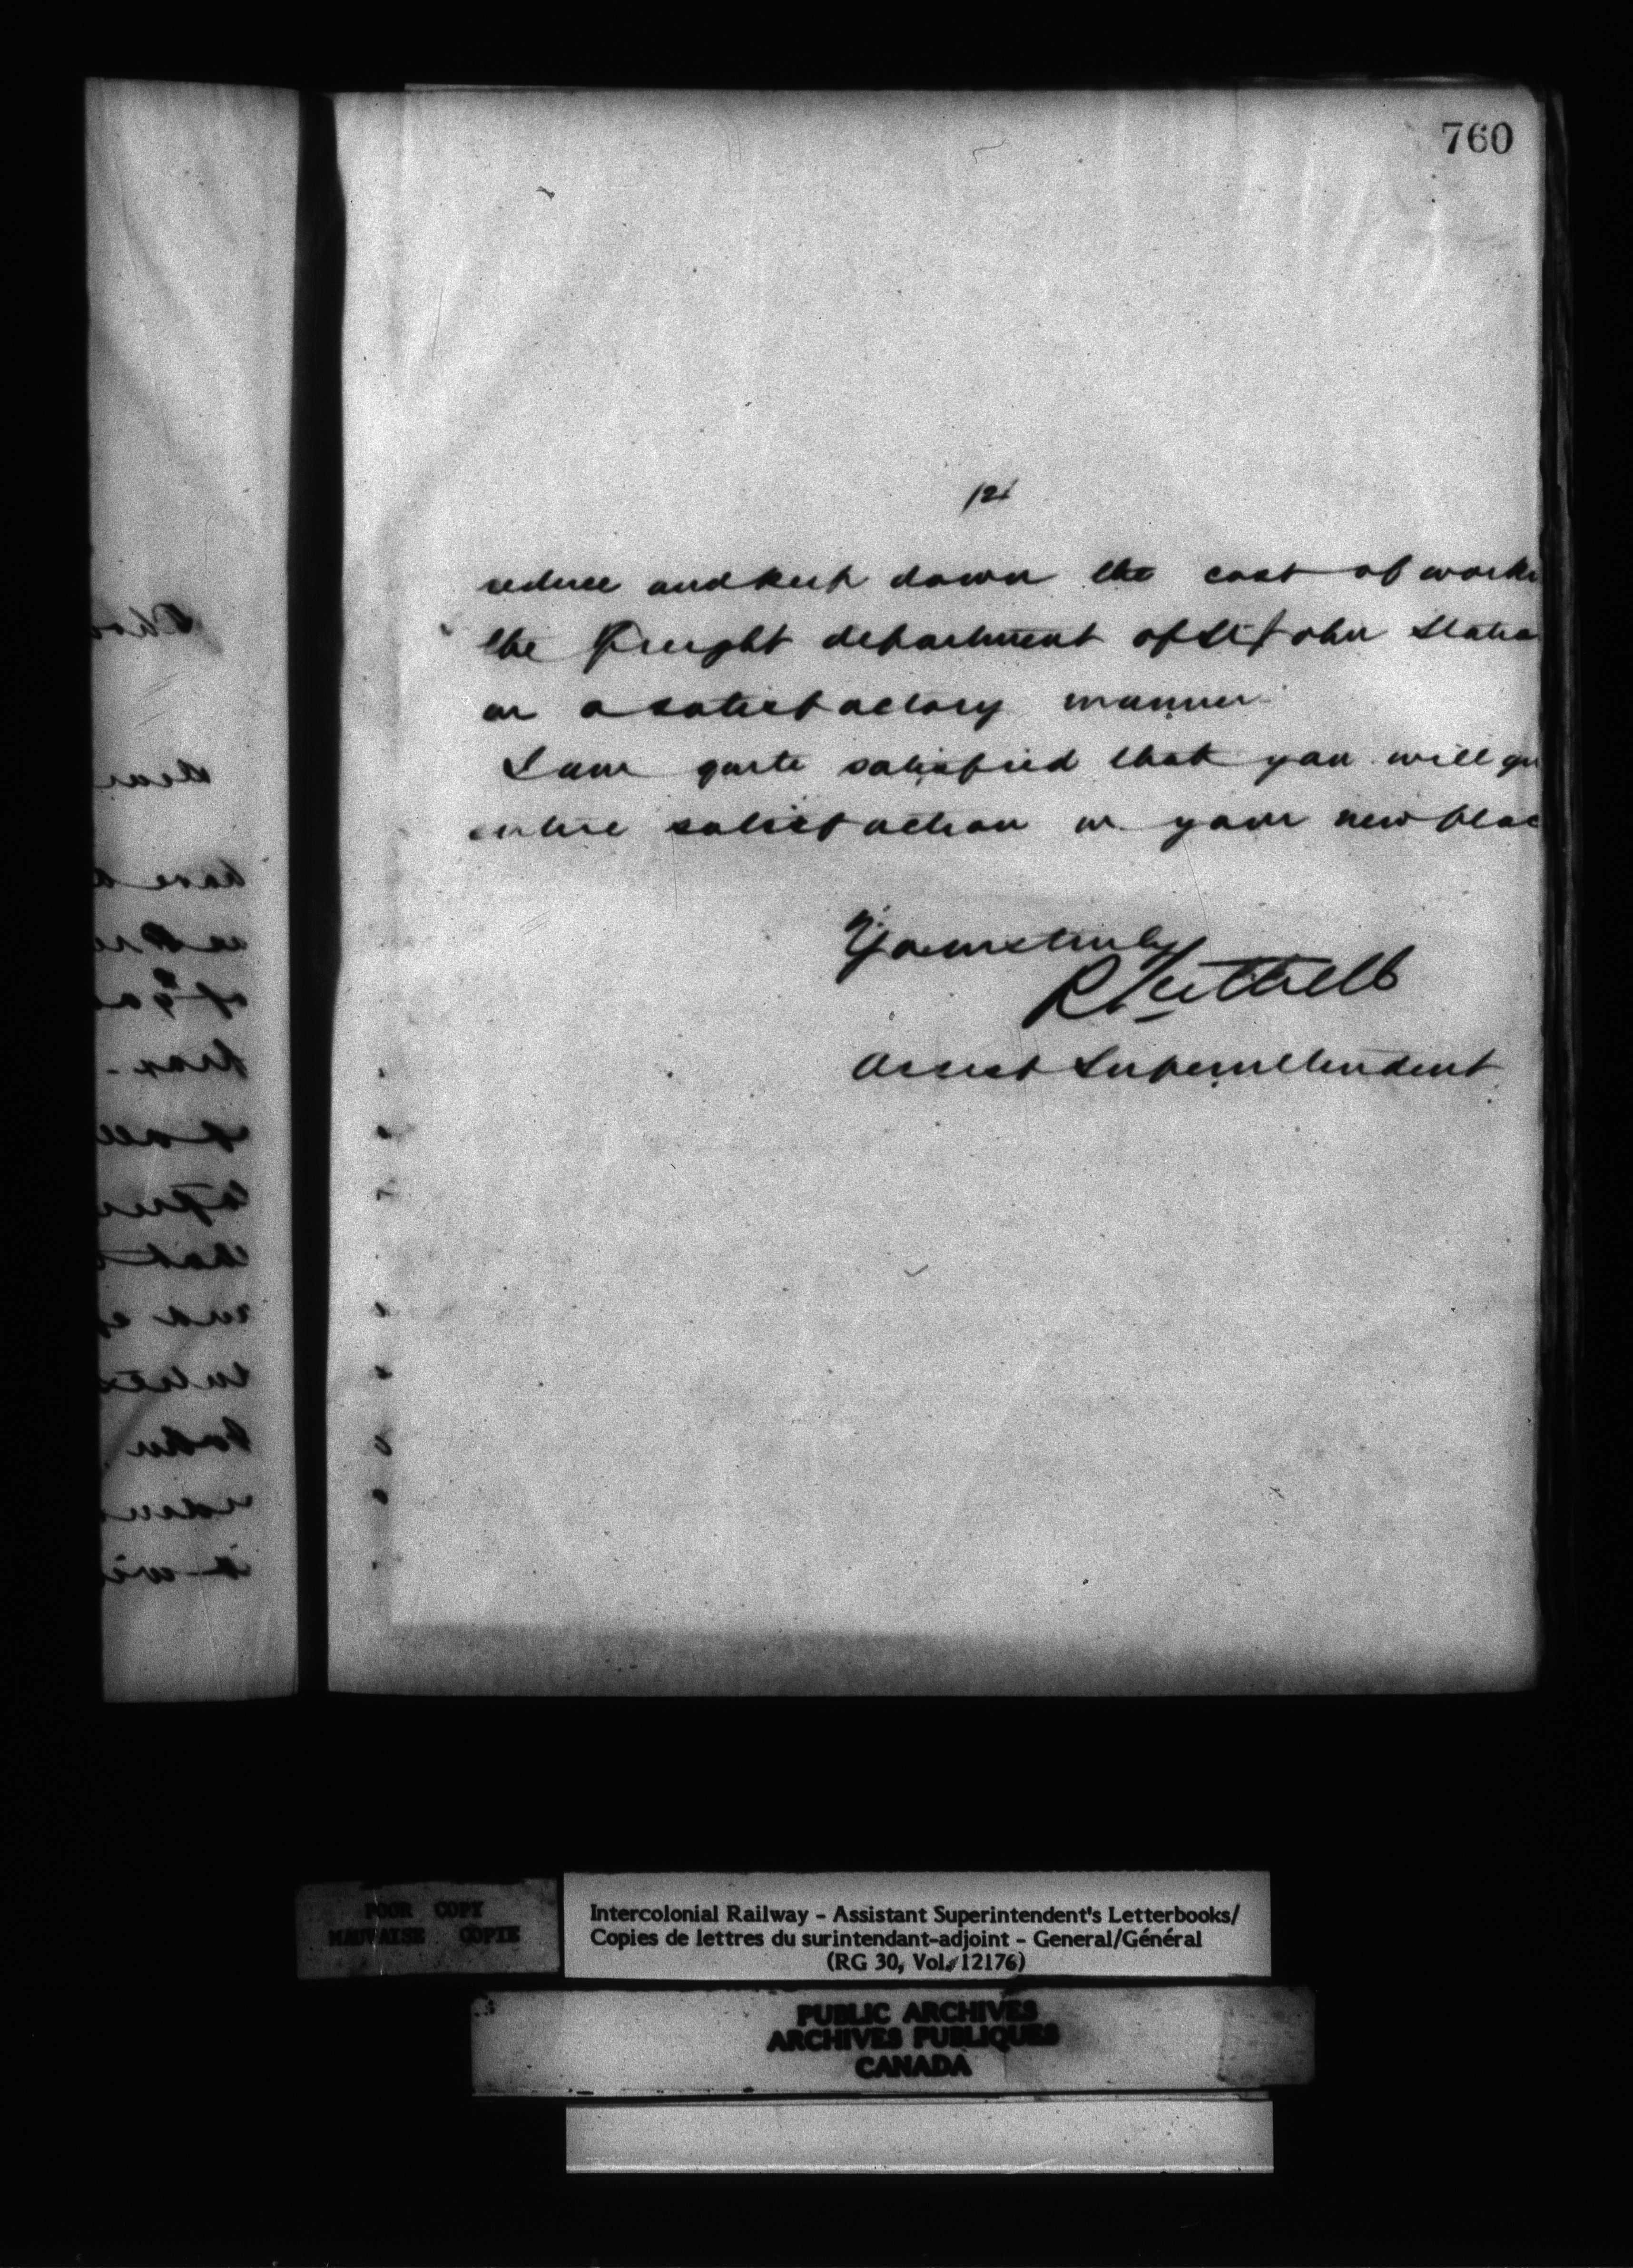 760
/2/
reduce and keep down the cost of workin
the Freight department of St John Statio
in a satisfactory manner
I am quite satisfied that you will giv
entire satisfaction in your new plac
Yours truly
R Luttrell
Assist Superintendent
POOR COPY
MAUVAISE COPIE
Intercolonial Railway - Assistant Superintendent's Letterbooks/
Copies de lettres du surintendant-adjoint - General/Général
(RG 30, Vol. 12176)
PUBLIC ARCHIVES
ARCHIVES PUBLIQUES
CANADA